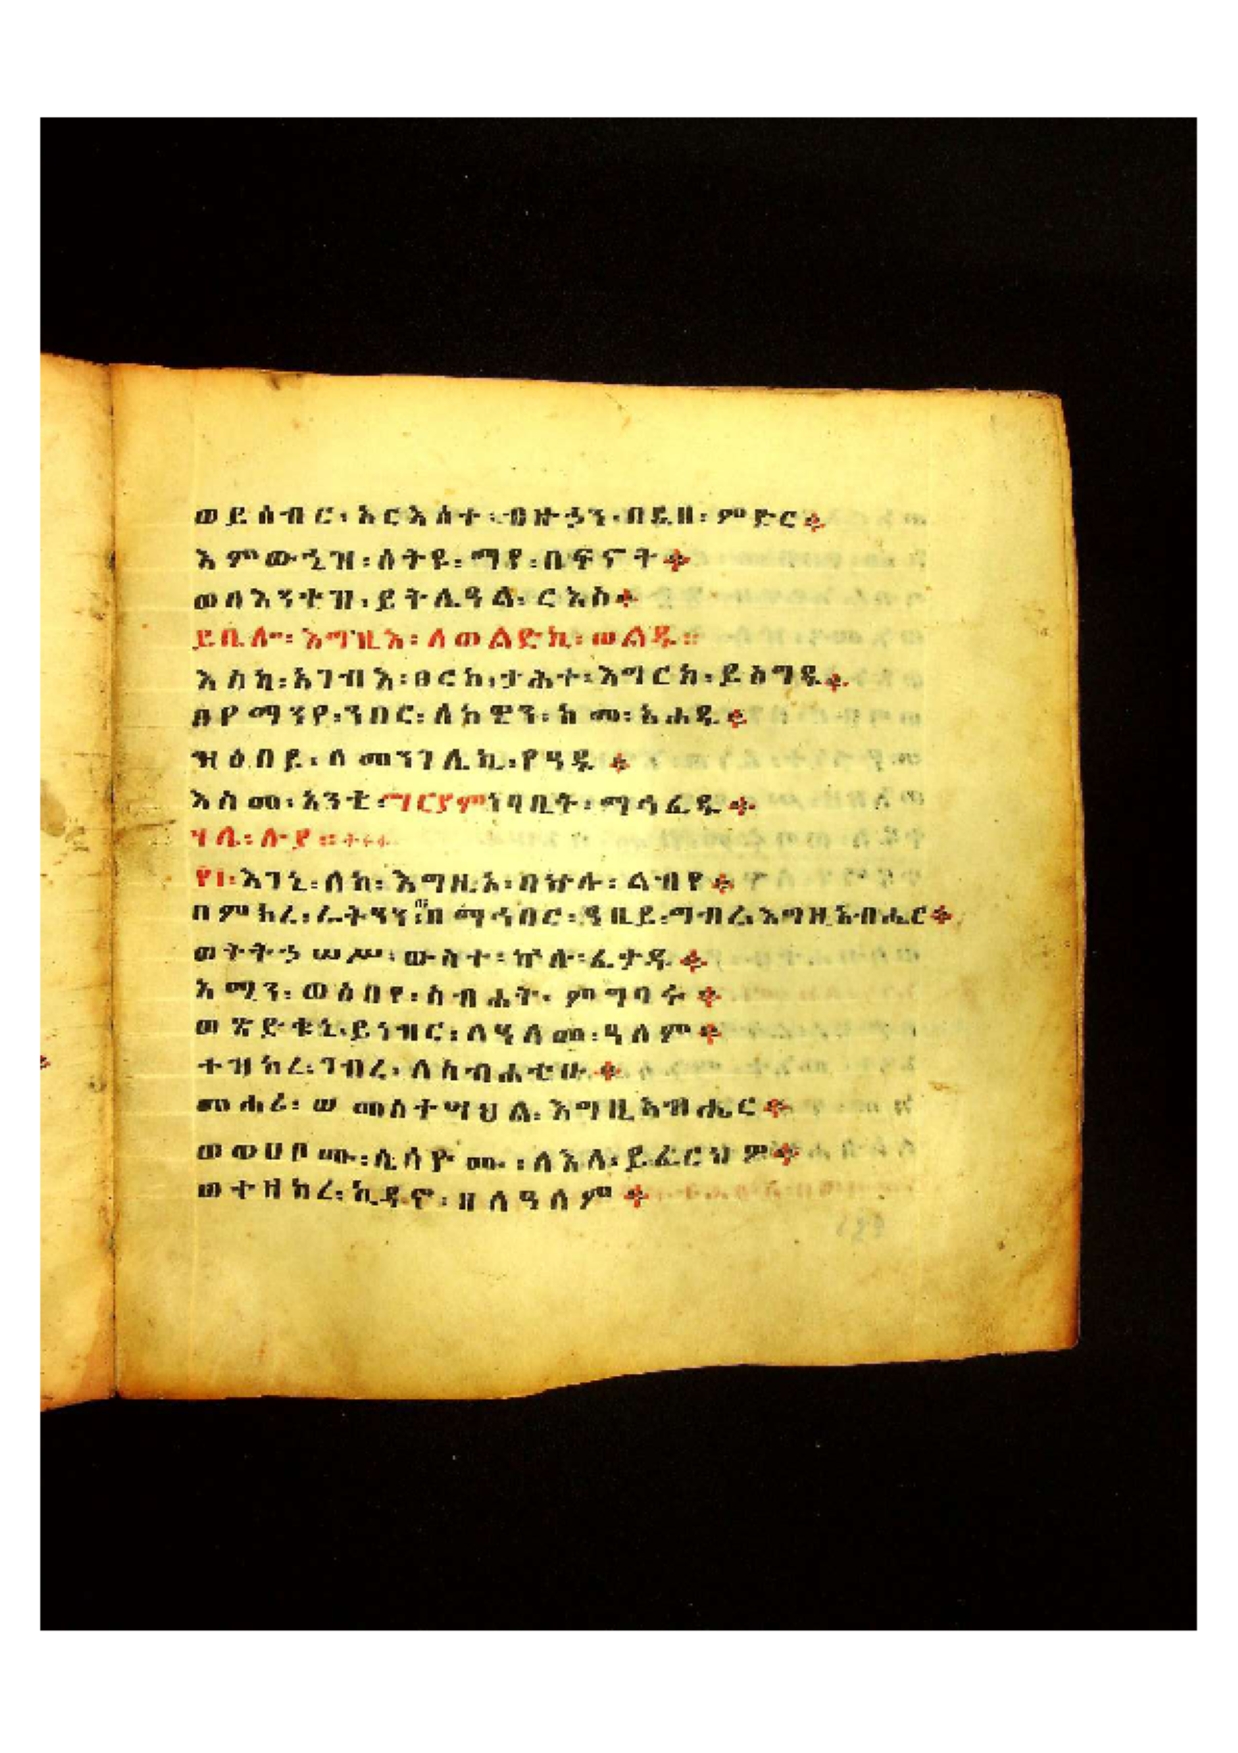 ወይሰብር፡ አርእስተ፡ ብዙኃን፡ በዲበ፡ ምድር።
እምውኂዝ፡ ሰትዩ፡ ማየ፡ በፍኖት።
ወበእንተዝ፡ ይትሌዓል፡ ርእስ።
ይቤሎ፡ እግዚእ፡ ለወልድኪ፡ ወልዱ።
እስከ፡ አገብእ፡ ፀርከ፡ ታሕተ፡ እግርከ፡ ይሰግዱ።
በየማንየ፡ ንበር፡ ለከዊን፡ ከመ፡ አሐዱ።
ዝዕበይ፡ ለመንገሌኪ፡ የዓዱ።
እስመ፡ አንቲ፡ ማርያም፡ ነባቢት፡ ማኅፈዱ።
ሃሌ፡ ሉያ።
፻፲፡ እገኒ፡ ለከ፡ እግዚኦ፡ በኵሉ፡ ልብየ።
በምክረ፡ ራትዓን፡ በማኅበር፡ ዓቢይ፡ ግብረ፡ እግዚአብሔር።
ወትትኃሠሥ፡ ውስተ፡ ኵሉ፡ ፈታዱ።
አሚን፡ ወዕበየ፡ ስብሐት፡ ምግባሩ።
ወጽድቁኒ፡ ይነብር፡ ለዓለመ፡ ዓለም።
ተዝከረ፡ ገብረ፡ ለስብሐቲሁ።
መሐሪ፡ ወመስተሣህል፡ እግዚአብሔር።
ወወሀቦሙ፡ ሲሳዮሙ፡ ለእለ፡ ይፈርህዎ።
ወተዘከረ፡ ኪዳኖ፡ ዘለዓለም።